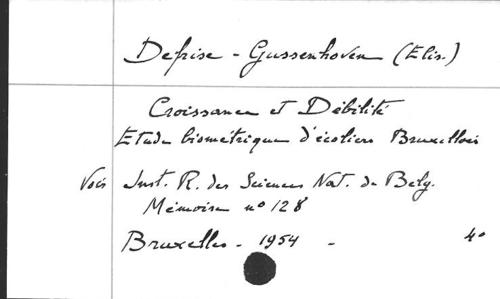 Defrise - Gussenhoven (Elis.)
Croissance et Débilité
Etude biométrique d'écoliers Bruxellois
Vois Inst. R. des Sciences Nat. de Belg.
Mémoire n° 128
Bruxelles - 1954 - 4°